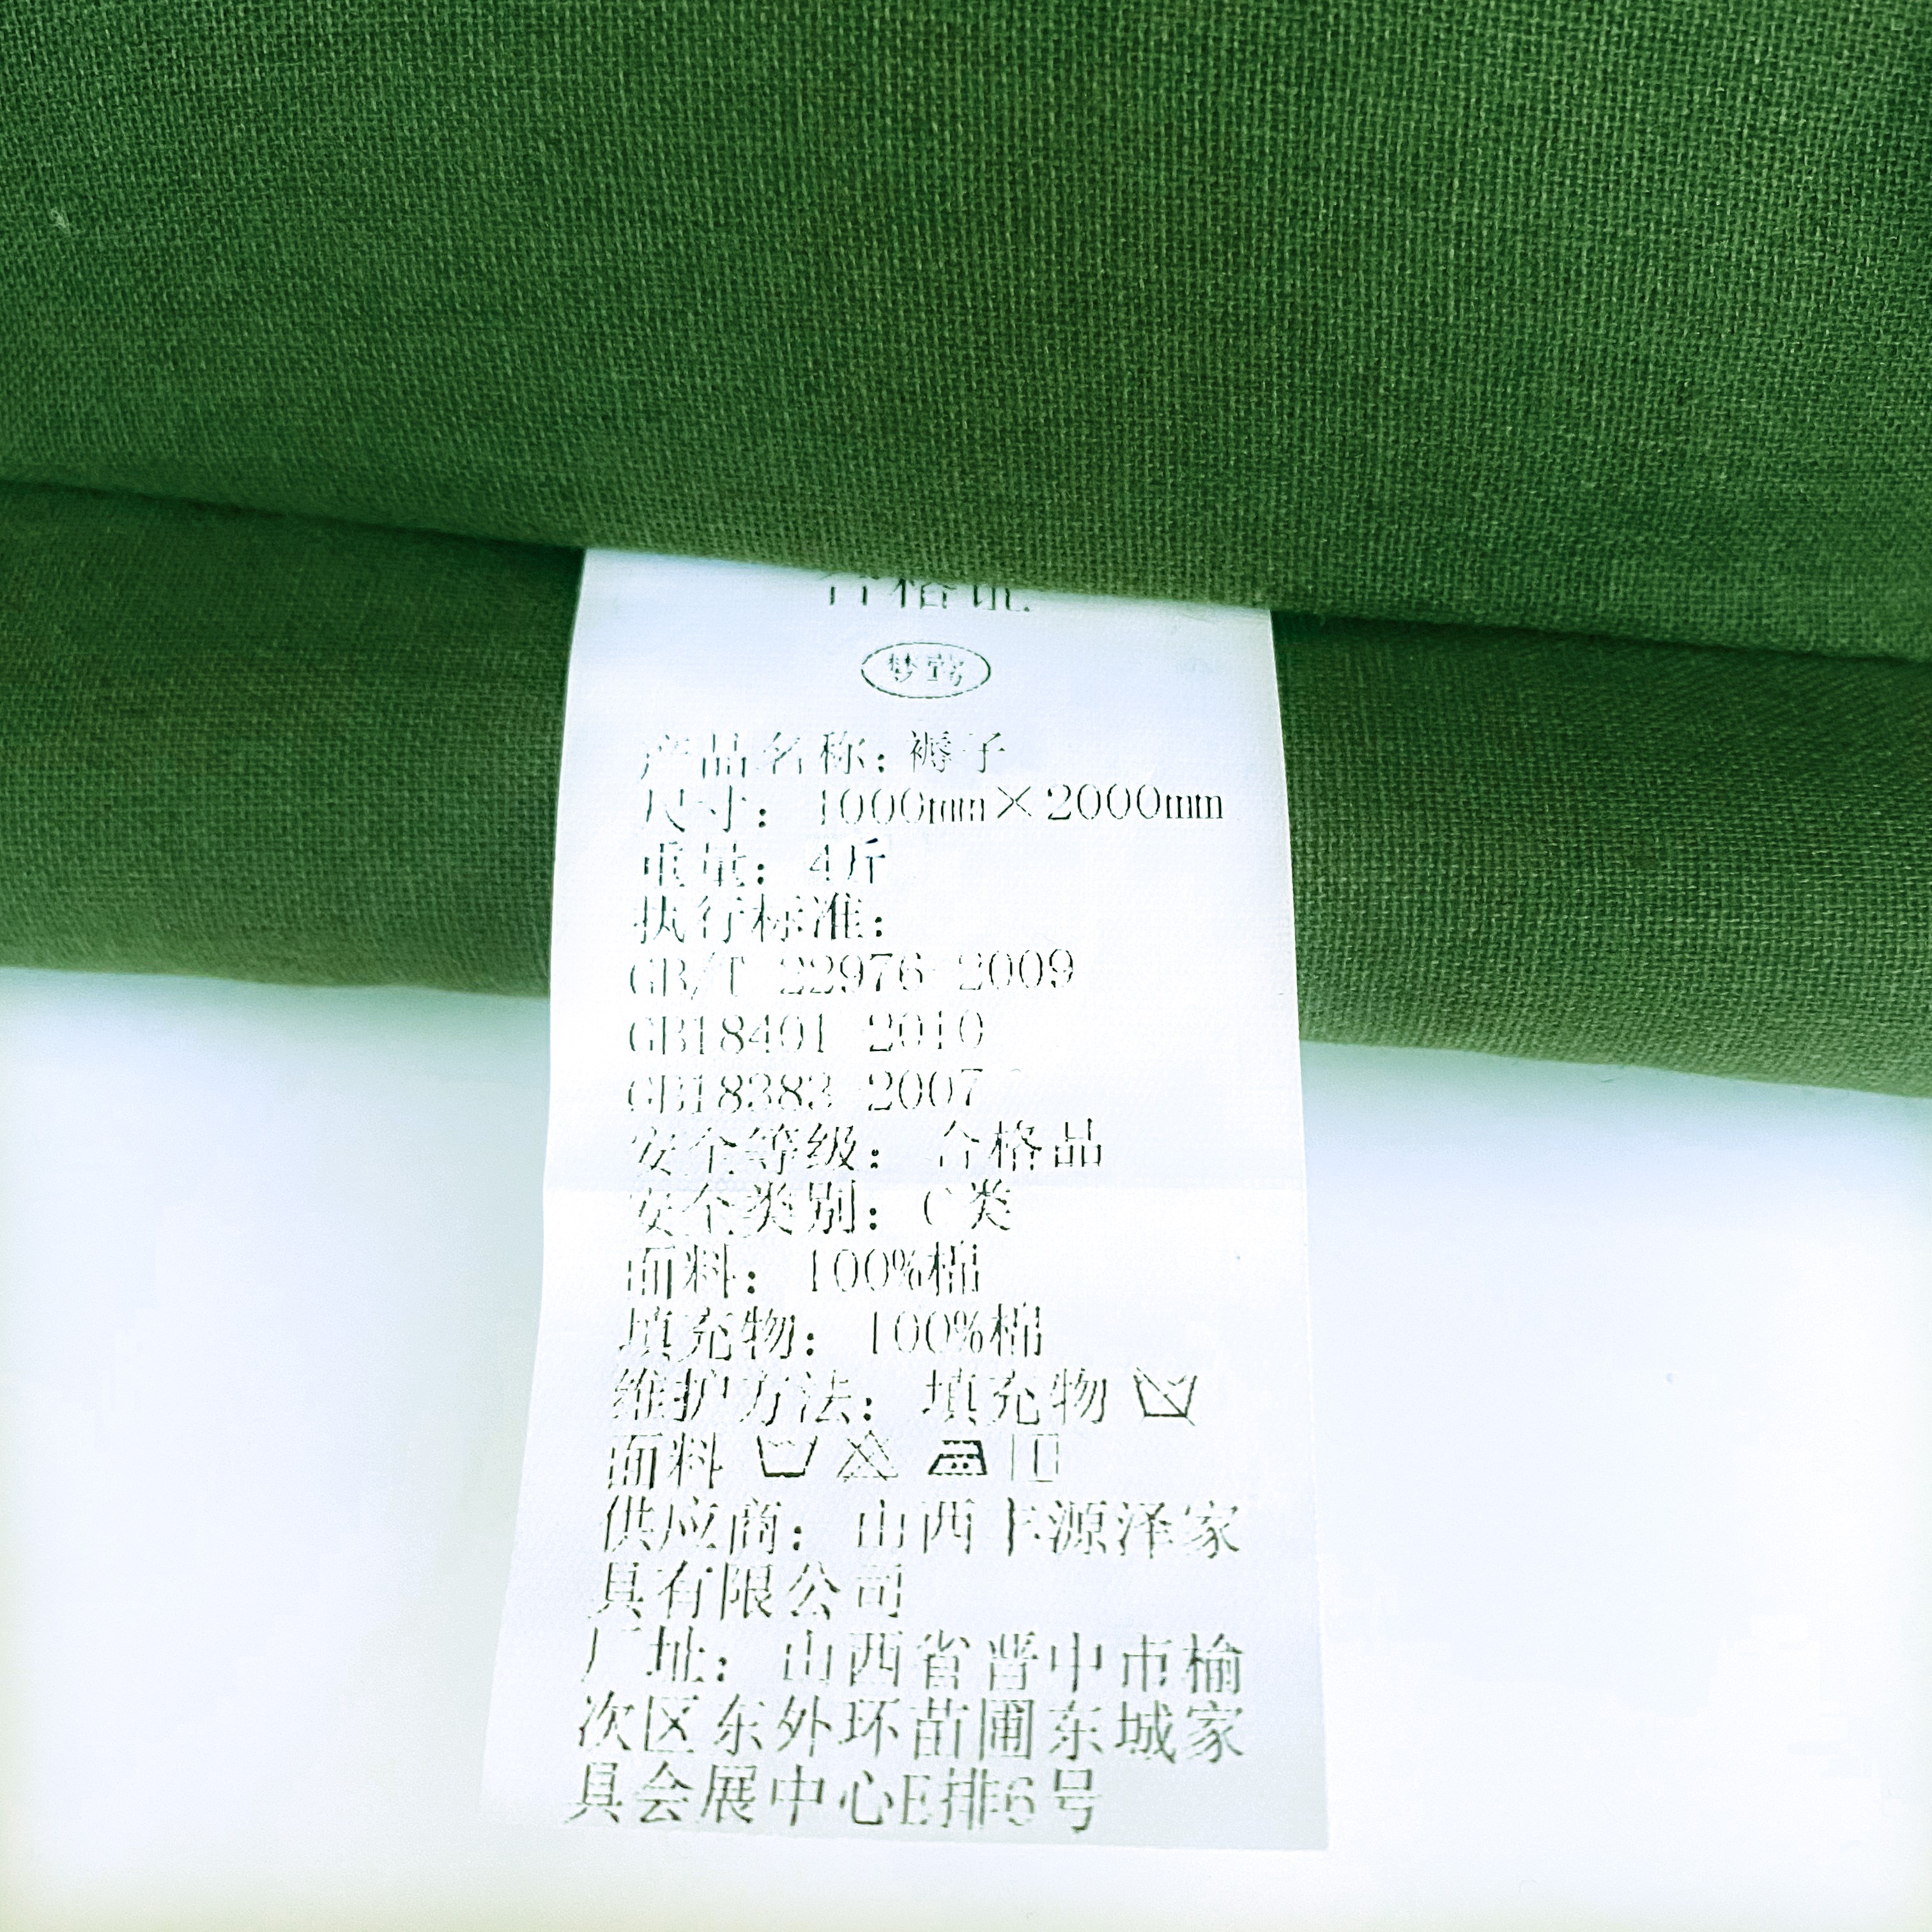 合格证
梦莺
产品名称：褥子
尺寸：1000mm×2000mm
重量：4斤
执行标准：
GB/T 22976-2009
GB18401-2010
GB18383-2007
安全等级：合格品
安全类别：C类
面料：100%棉
填充物：100%棉
维护方法：填充物
面料
供应商：山西丰源泽家
具有限公司
厂址：山西省晋中市榆
次区东外环苗圃东城家
具会展中心E排6号